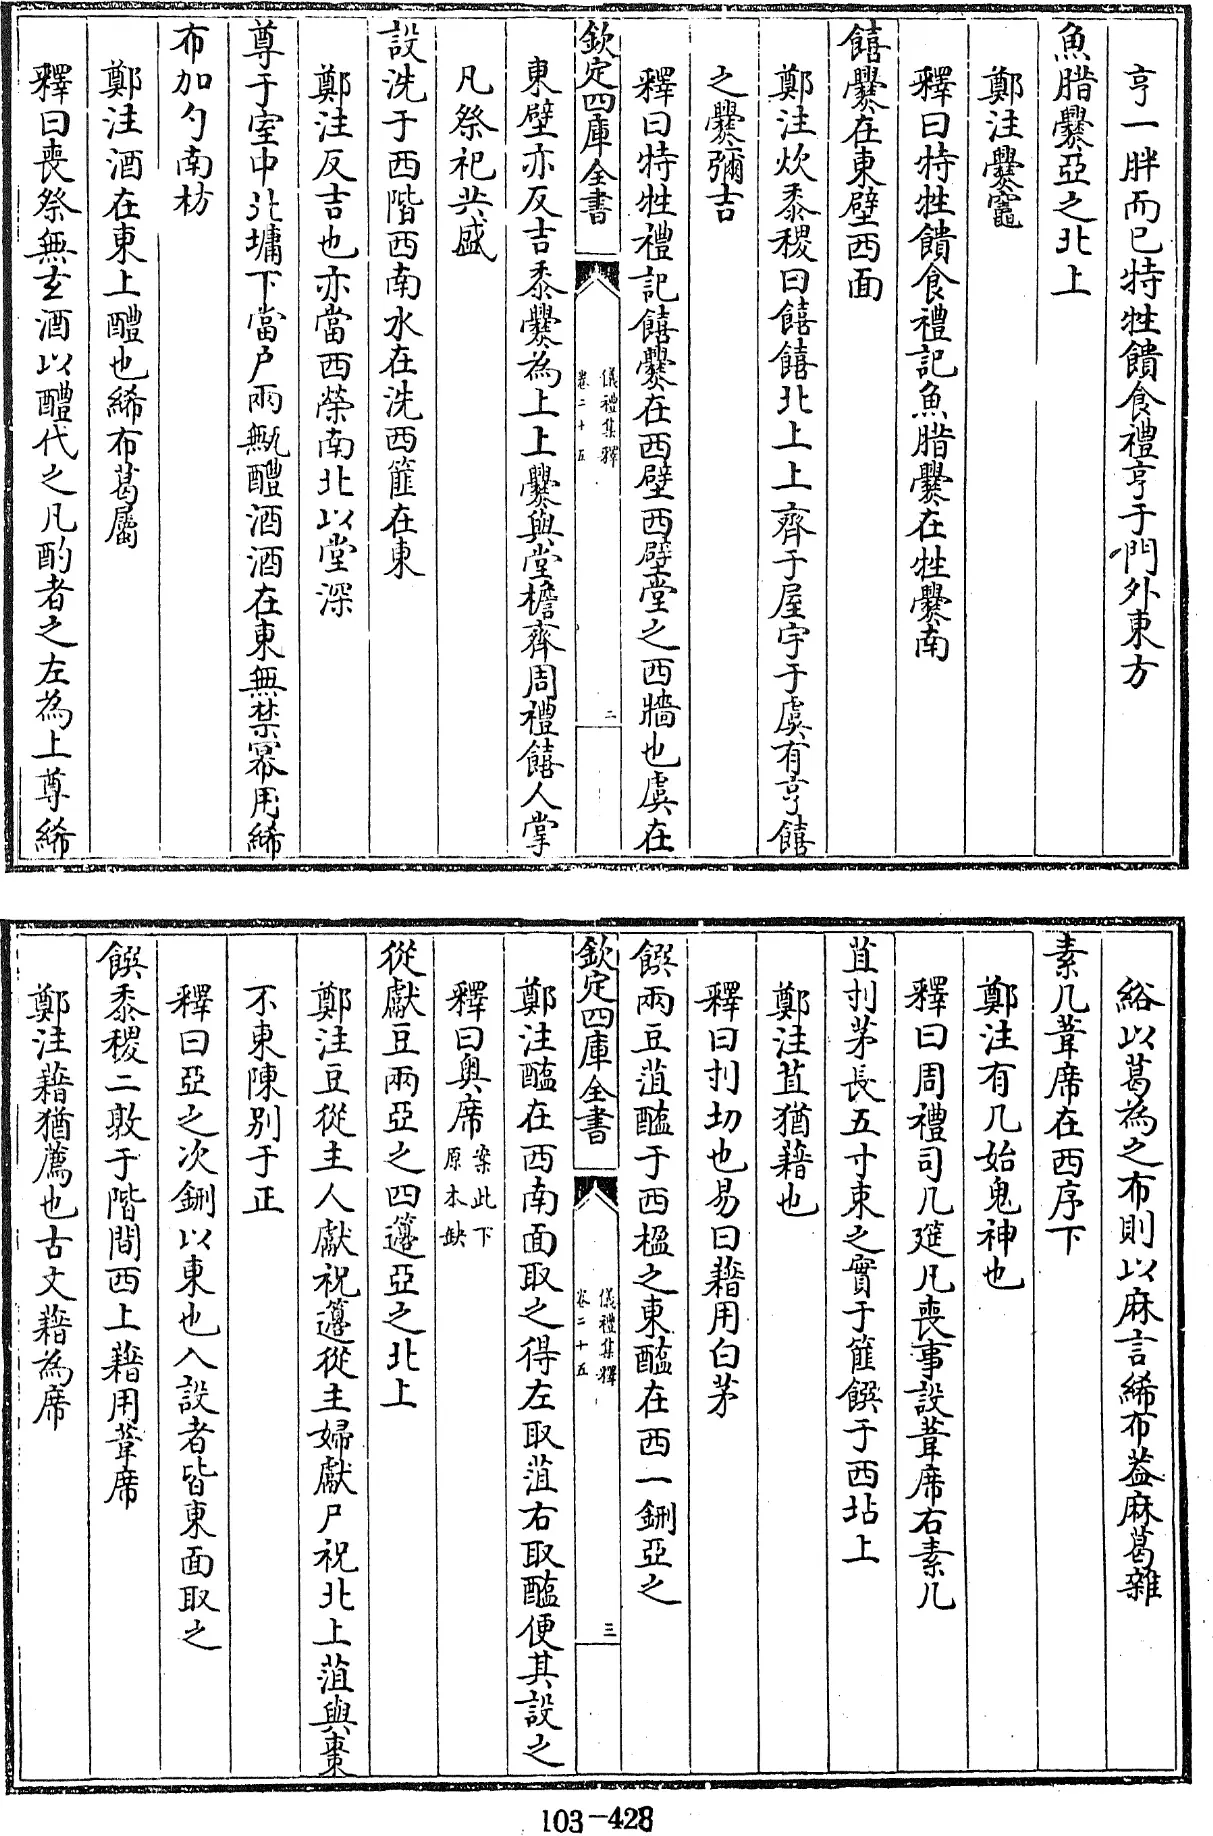 亨一胖而已特牲饋食禮亨于門外東方
魚腊爨亞之北上
鄭注爨竈
釋曰特牲饋食禮記魚腊爨在牲爨南
饎爨在東壁西面
鄭注炊黍稷曰饎饎北上上齊于屋宇于虞有亨饎
之爨彌吉
釋曰特牲禮記饎爨在西壁西壁堂之西牆也虞在
欽定四庫全書
儀禮集釋
卷二十五
二
東壁亦反吉黍爨為上上爨與堂檐齊周禮饎人掌
凡祭祀共盛
設洗于西階西南水在洗西篚在東
鄭注反吉也亦當西榮南北以堂深
尊于室中北墉下當户兩甒醴酒酒在東無禁冪用絺
布加勺南枋
鄭注酒在東上醴也絺布葛屬
釋曰喪祭無玄酒以醴代之凡酌者之左為上尊絺
綌以葛為之布則以麻言絺布葢麻葛雜
素几葦席在西序下
鄭注有几始鬼神也
釋曰周禮司几筵凡喪事設葦席右素几
苴刌茅長五寸束之實于篚饌于西坫上
鄭注苴猶藉也
釋曰刌切也易曰藉用白茅
饌兩豆菹醢于西楹之東醢在西一鉶亞之
欽定四庫全書
儀禮集釋
卷二十五
三
鄭注醢在西南面取之得左取菹右取醢便其設之
釋曰奥席案此下原本缺
從獻豆兩亞之四籩亞之北上
鄭注豆從主人獻祝籩從主婦獻尸祝北上菹與棗
不東陳别于正
釋曰亞之次鉶以東也入設者皆東面取之
饌黍稷二敦于階間西上藉用葦席
鄭注藉猶薦也古文藉為席
103-428